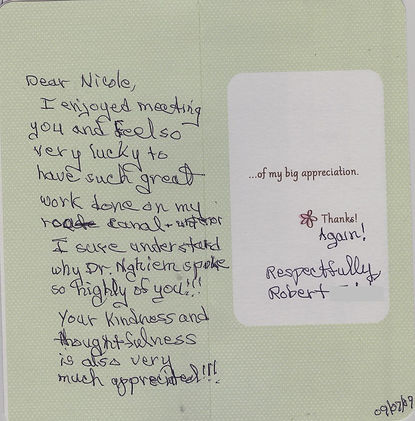 Dear Nicole,
I enjoyed meeting
you and feel so
very lucky to
have such great
work done on my
canal +
I sure understand
why Dr. Nghiem spoke
so highly of you!!!
Your kindness and
thoughtfulness
is also very
much appreciated!!!
...of my big appreciation.
Thanks!
Again!
Respectfully
Robert
09/07/09